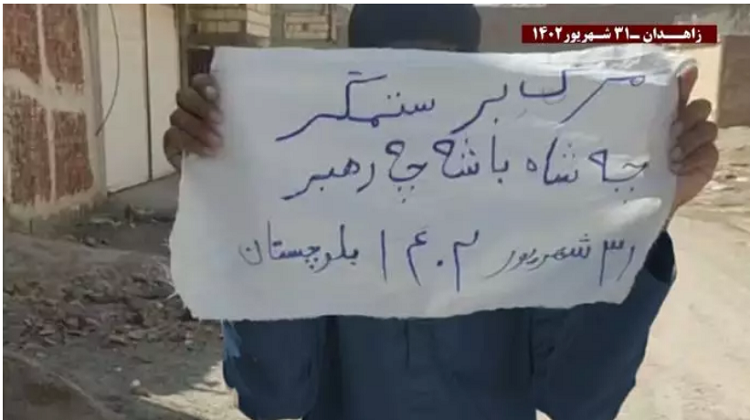 زاهـدان ـ ۳۱ شهریور ۱۴۰۲
مرگ بر ستمگر
چه شاه باشه چه رهبر
۳۱ شهریور ۱۴۰۲ بلوچستان